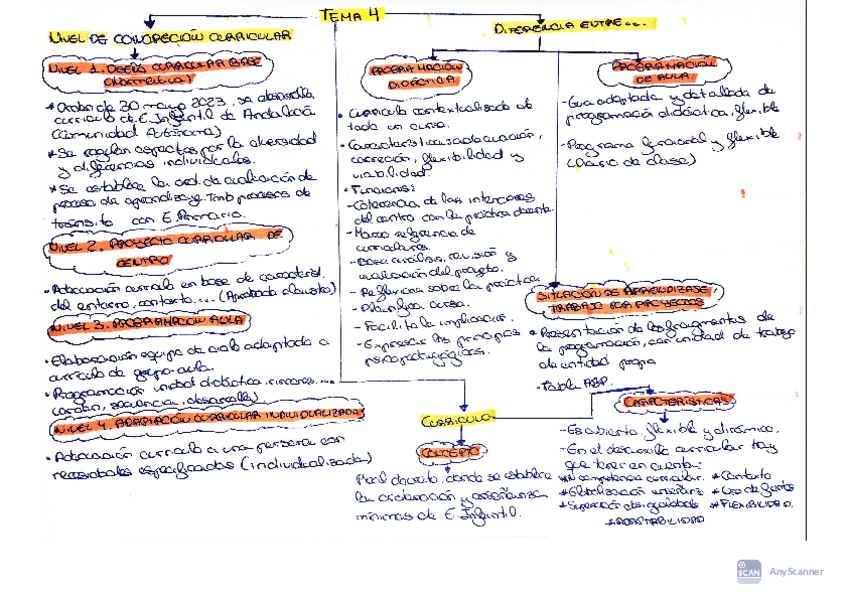 TEMA 4
NIVEL DE CONCRECIÓN CURRICULAR
NIVEL 1. DISEÑO CURRICULAR BASE
(Normativa)
* Orden de 30 mayo 2023, se desarrolla
currículo de E. Infantil de Andalucía
(Comunidad Autónoma)
* Se regulan aspectos por la diversidad
y diferencias individuales.
* Se establece la ord. de evaluación de
proceso de aprendizaje. Tmb procesos de
tránsito con E. Primaria.
NIVEL 2. PROYECTO CURRICULAR DE
CENTRO
• Adecuación currículo en base de caracterist.
del entorno, contexto... (Aprobada claustro)
NIVEL 3. PROGRAMACIÓN AULA
• Elaboración equipo de ciclo adaptado a
currículo de grupo-aula.
• Programación unidad didáctica, rincones...
(orden, secuencia, desarrollo)
NIVEL 4. ADAPTACIÓN CURRICULAR INDIVIDUALIZADA
• Adecuación currículo a una persona con
necesidades especificadas (individualizada)
DIFERENCIA ENTRE...
PROGRAMACIÓN
DIDÁCTICA
• Currículo contextualizado de
todo un curso.
• Características: adecuación,
concreción, flexibilidad y
viabilidad
• Funciones:
- Coherencia de las intenciones
del centro con la práctica docente.
- Marco referencia de
- Base análisis, revisión y
evaluación del proyecto.
- Reflexiona sobre la práctica.
- Planifica curso.
- Facilita la implicación.
- Expresar los principios
psicopedagógicos.
PROGRAMACIÓN
DE AULA
- Guía adaptada y detallada de
programación didáctica, flexible
- Programa funcional y flexible
(Diario de clase)
SITUACIÓN DE APRENDIZAJE,
TRABAJO POR PROYECTOS
• Presentación de los fragmentos de
la programación, con unidad de trabajo
de entidad propia
• Tabla ABP.
CURRÍCULO
CONCEPTO
Real decreto, donde se establece
la ordenación y enseñanzas
mínimas de E. Infantil.
CARACTERÍSTICAS
- Es abierto, flexible y dinámico.
- En el desarrollo curricular hay
que tener en cuenta:
* N competencia curricular. * Contexto
* Globalización enseñanza * Uso de
* Superación desigualdades * FLEXIBILIDAD.
* ADAPTABILIDAD
SCAN
AnyScanner